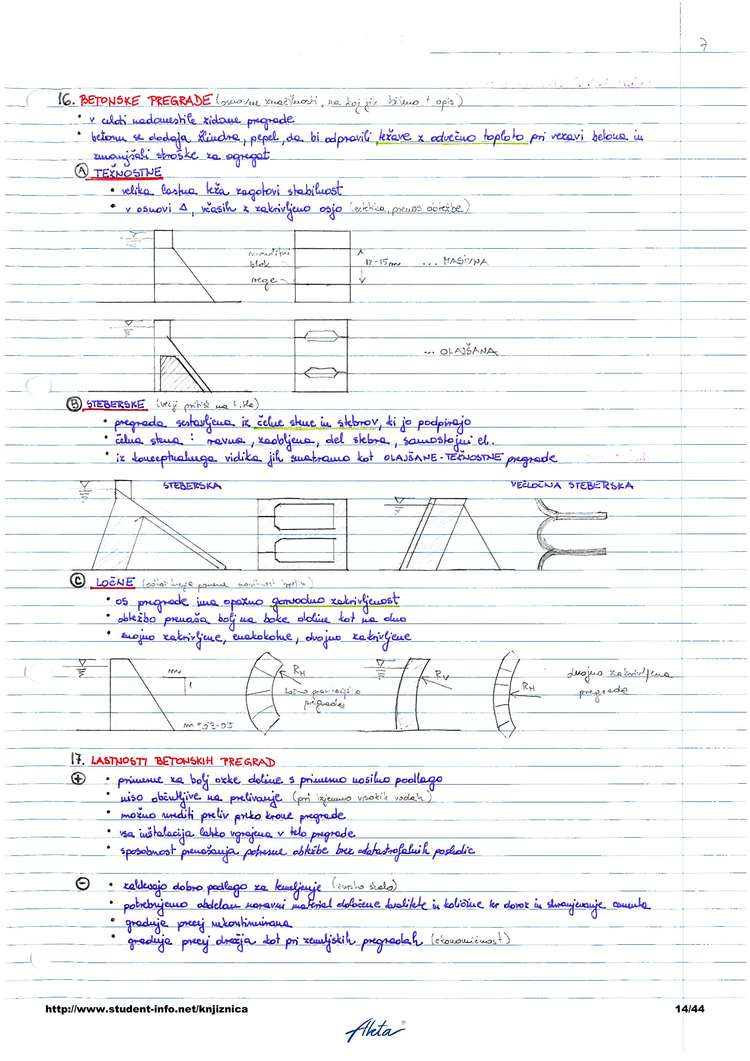 7
16. BETONSKE PREGRADE (osnovne značilnosti, na kaj jih delimo + opis)
• v celoti nadomestile zidane pregrade
• betonu se dodaja žlindra, pepel, da bi odpravili težave z odvečno toploto pri vezavi betona in
zmanjšali stroške za agregat
A TEŽNOSTNE
• velika lastna teža zagotovi stabilnost
• v osnovi Δ, včasih z zakrivljeno osjo (estetika, prenos obtežbe)
blok
rege
12-15m
... MASIVNA
... OLAJŠANA
B STEBERSKE (večji pritisk na t. tla)
• pregrada sestavljena iz čelne stene in stebrov, ki jo podpirajo
• čelna stena: ravna, zaobljena, del stebra, samostojni el.
• iz konceptualnega vidika jih smatramo kot OLAJŠANE-TEŽNOSTNE pregrade
STEBERSKA
VEČLOČNA STEBERSKA
C LOČNE
• os pregrade ima opazno gorvodno zakrivljenost
• obtežbo prenaša bolj na boke doline kot na dno
• enojno zakrivljene, enakokotne, dvojno zakrivljene
m
1
RH
pregrada
RV
RH
dvojno zakrivljena
pregrada
17. LASTNOSTI BETONSKIH PREGRAD
+ • primerne za bolj ozke doline s primerno nosilno podlago
• niso občutljive na prelivanje (pri izjemno visokih vodah)
• možno urediti preliv preko krone pregrade
• vsa inštalacija lahko vgrajena v telo pregrade
• sposobnost prenašanja potresne obtežbe brez katastrofalnih posledic
- • zahtevajo dobro podlago za temeljenje (čvrsta skala)
• potrebujemo obdelan naravni material določene kvalitete in količine ter dovoz in shranjevanje cementa
• gradnja precej nekontinuirana
• gradnja precej dražja kot pri zemeljskih pregradah (ekonomičnost)
http://www.student-info.net/knjiznica
14/44
Akta